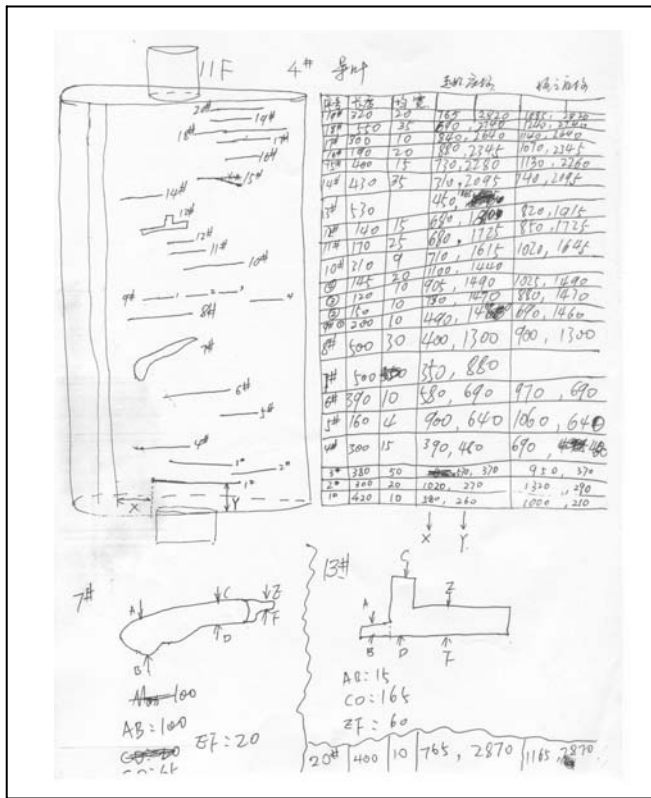 11F 4# 导叶
20#
19#
18#
17#
16#
15#
14#
13#
12#
11#
10#
9# 1 2 3 4
8#
7#
6#
5#
4#
3#
2#
1#
X Y
序号 长度 均宽 起始座标 终立座标
19# 320 20 765, 2820 1085, 2820
18# 550 35
17# 300 10 840, 2640 1140, 2640
16# 190 20 880, 2345 1070, 2345
15# 400 15 730, 2280 1130, 2260
14# 430 25 310, 2095 740, 2095
13# 530 450, 820, 1915
12# 140 15 680, 850, 1725
11# 170 25 680, 1725
10# 310 9 710, 1615 1020, 1645
1100, 1440
④ 145 20 905, 1490 1025, 1490
③ 120 10 780, 1470 880, 1470
② 150 10 490, 690, 1460
200 10
8# 500 30 400, 1300 900, 1300
7# 500 350, 880
6# 390 10 580, 690 970, 690
5# 160 4 900, 640 1060, 640
4# 300 15 390, 480 690, 480
3# 380 50 570, 370 950, 370
2# 300 20 1020, 270 1320, 290
1# 420 10 580, 260 1000, 210
X Y
7#
A C E
B D F
100
AB:100
EF:20
13#
C
A E
B D F
AB:15
CD:165
EF:60
20# 400 10 765, 2870 1165, 2870